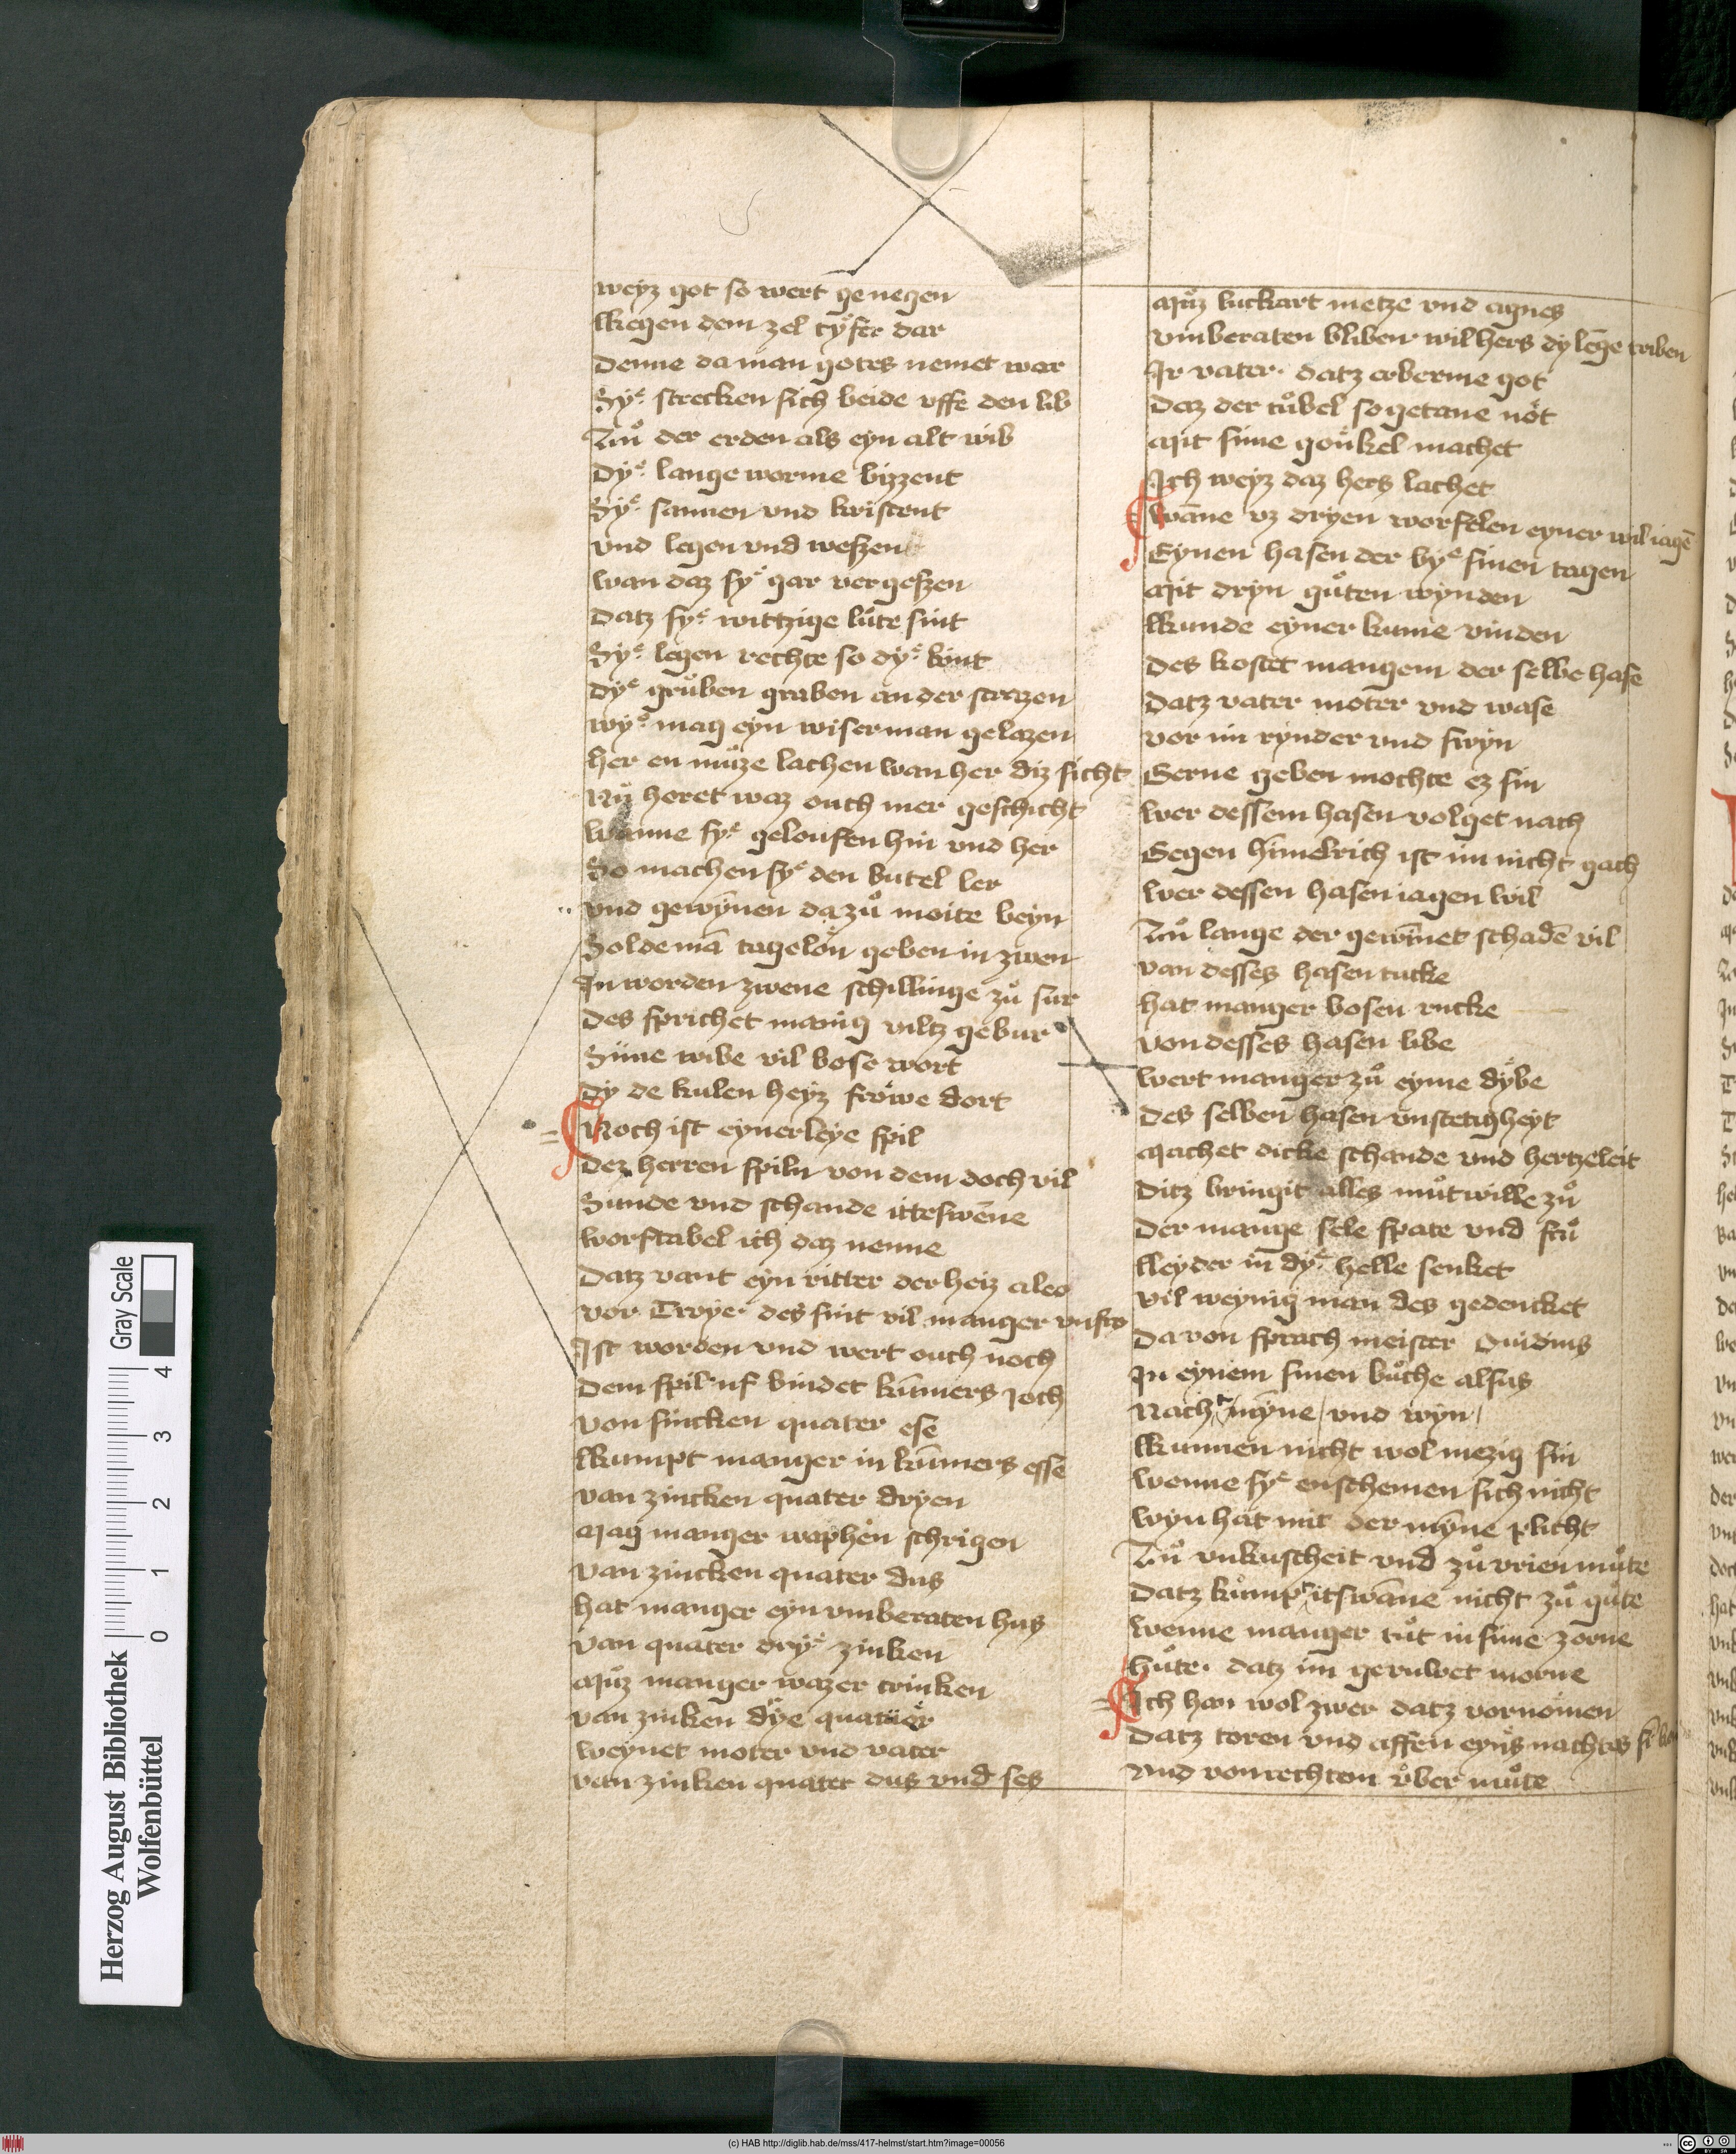 weyz got so wert genegen
kegen dem zel tyͤfer dar
Denne da man gotes nemet war
Syͤ strecken sich beide vffe den lib
Zuͦ der erden als eyn alt wib
Dyͤ lange worme bizzent
Syͤ sannen vnd kristent
vnd legen vnd weszen
wan daz syͤ gar vergeszen
Datz syͤ wittzige luͤte sint
Syͤ legen rechte so dyͤ kint
dyͤ gruͦben graben an der strazen
wyͤ mag eyn wiser man gelazen
her en muͦze lachen wan her diz sicht
Nuͦ horet waz ouch mer geschicht
wanne syͤ geloufen hin vnd her
So machen syͤ den butel ler
vnd gewȳnen dazuͦ moite beyn
Solde mā tagelon geben in zwen
In worden zwene schillinge zuͦ sur
des sprichet manig viltz gebur
Sime wibe vil bose wort
dy de kulen heyz frowe dort
Noch ist eynerleye spil
Dez herren spiln von dem doch vil
Sunde vnd schande itteswēne
worftabel ich daz nenne
Datz vant eyn ritter der heiz aleo
vor Troye des sint vil manger vnfro
Ist worden vnd wert ouch noch
Dem spil uf bindet kūmers ioch
von sincken quater ese
kumpt manger in kūmers esse
van zincken quater dryen
Mag manger waphen schrigen
Van zincken quater dus
hat manger eyn vmberaten hus
Van quater dryͤ zinken
Muͦz manger wazer trinken
van zinken dye quater
weynet moter vnd vater
van zinken quater dus vnd ses
Muͦz luckart metze vnd agnes
vmberaten bliben wil hers dy lēge triben
Ir vater datz erberme got
Daz der tuͦbel so getane not
Mit sime goukel machet
Ich weyz daz hers lachet
wāne vz dryen worfelen eyner wil iagē
Eynen hasen der byͤ sinen tagen
Mit dryn guͦten wynden
kunde eyner kume vinden
Des kostet mangem der selbe hase
Datz vater moter vnd wase
vor im rynder vnd swyn
Gerne geben mochte ez sin
wer dessem hasen volget nach
Gegen himelrich ist im nicht gach
wer dessen hasen iagen wil
Zuͦ lange der gewīnet schadē vil
van desses hasen tucke
hat manger bosen rucke
von desses hasen libe
wert manger zuͦ eyme dybe
Des selben hasen vnstetigheyt
Machet dicke schande vnd hertzeleit
Ditz bringit alles muͦtwille zuͦ
Der mange sele spate vnd fruͦ
leyder in dyͤ helle senket
vil weynig man des gedencket
Da von sprach meister Ouidius
In eynem sinen buͦche alsus
Nacht mȳne vnd wyn
kunnen nicht wol mezig sin
wenne syͤ enschemen sich nicht
wyn hat mit der mȳne plicht
Zuͦ vnkuscheit vnd zuͦ vrien muͦte
Datz kuͦmpt itswāne nicht zuͦ guͦte
wenne manger tuͦt in sime zorne
huͦte datz im geruwet morne
Ich han wol zwer datz vornomen
Datz toren vnd affen eyns nachtes
Vnd von rechtem vͦber muͦte
Herzog August Bibliothek
Wolfenbüttel
Gray Scale
0 1 2 3 4
(c) HAB http://diglib.hab.de/mss/417-helmst/start.htm?image=00056